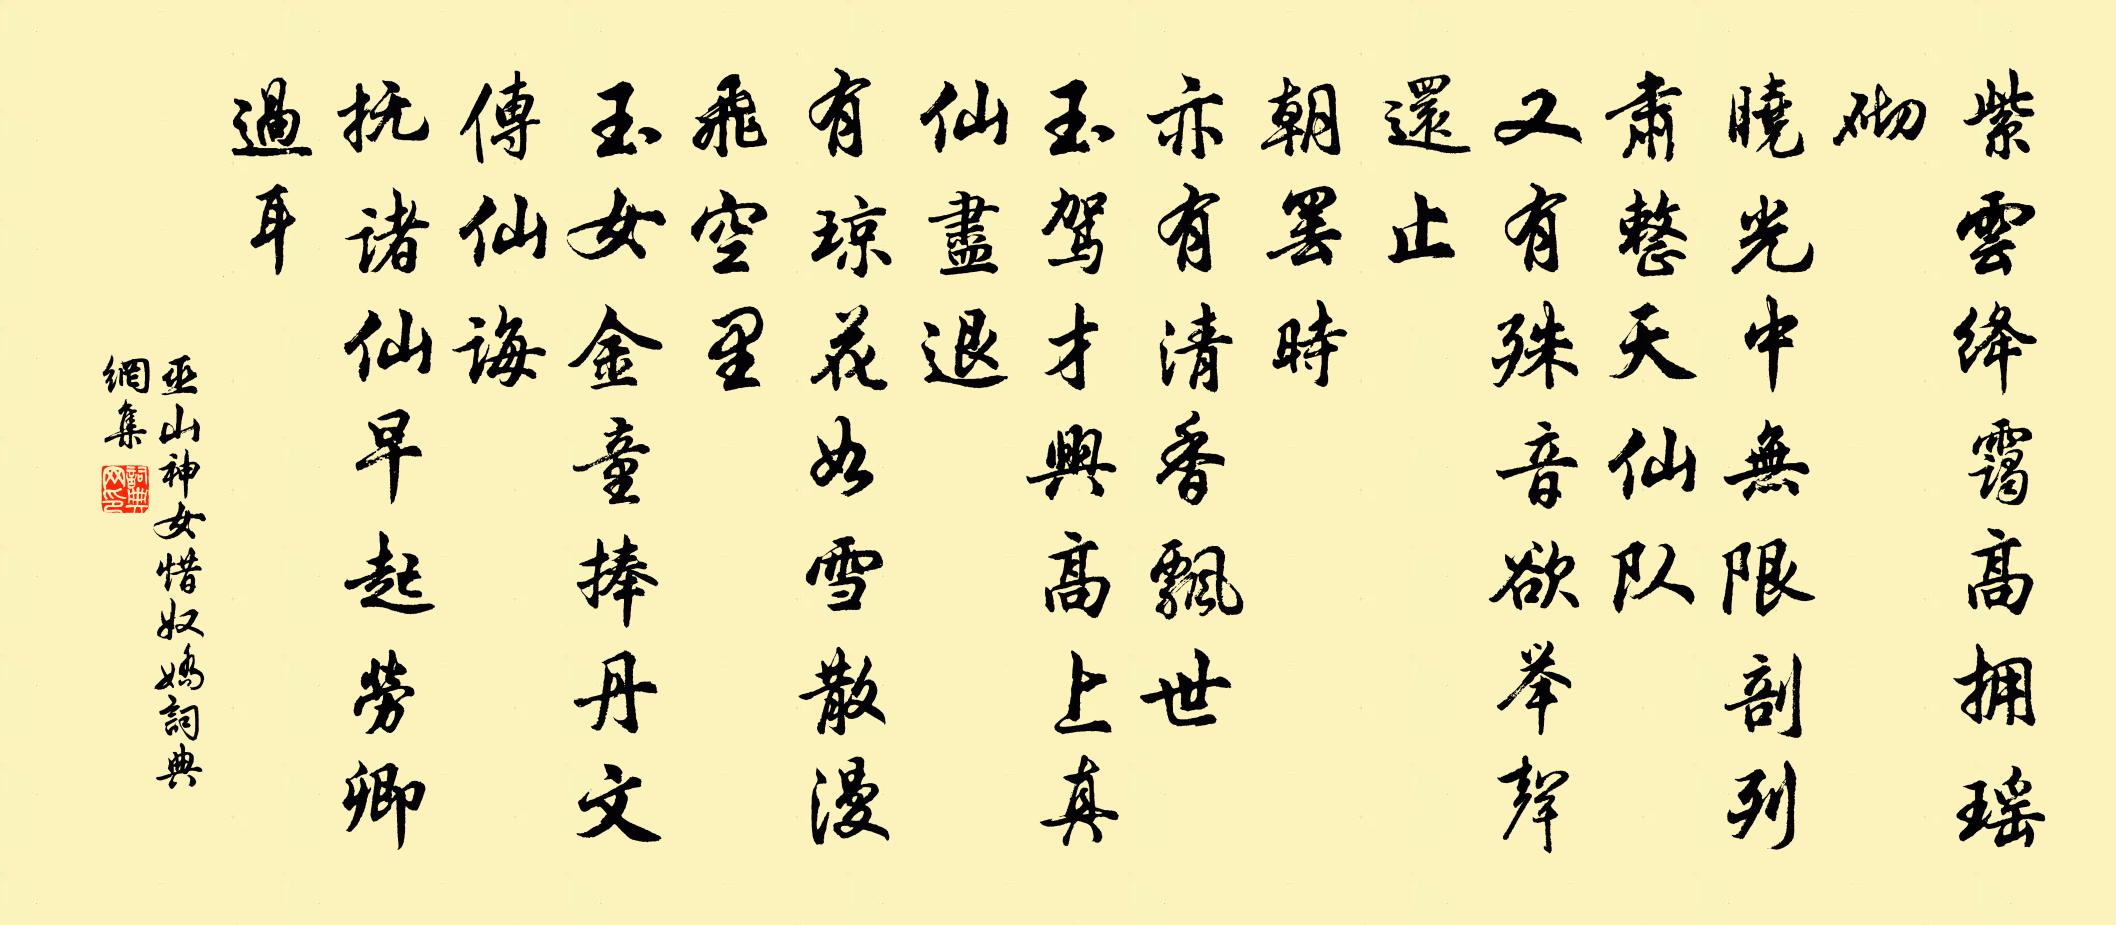 紫雲絳靄高拥瑶
砌
曉光中無限剖列
肅整天仙队
又有殊音欲举聲
還止
朝罢時
亦有清香飄世
玉駕才興高上真
仙盡退
有琼花如雪散漫
飛空里
玉女金童捧丹文
傳仙诲
抚诸仙早起劳卿
過耳
巫山神女惜奴嬌詞典
網集
詞典网印